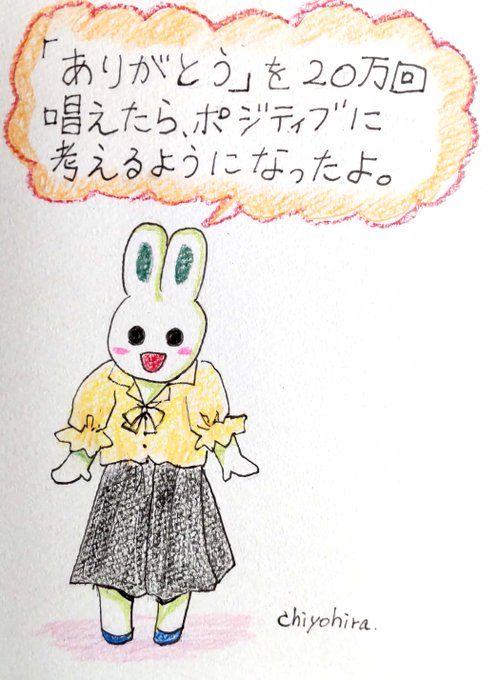 「ありがとう」を20万回
唱えたら、ポジティブに
考えるようになったよ。
chiyohira.